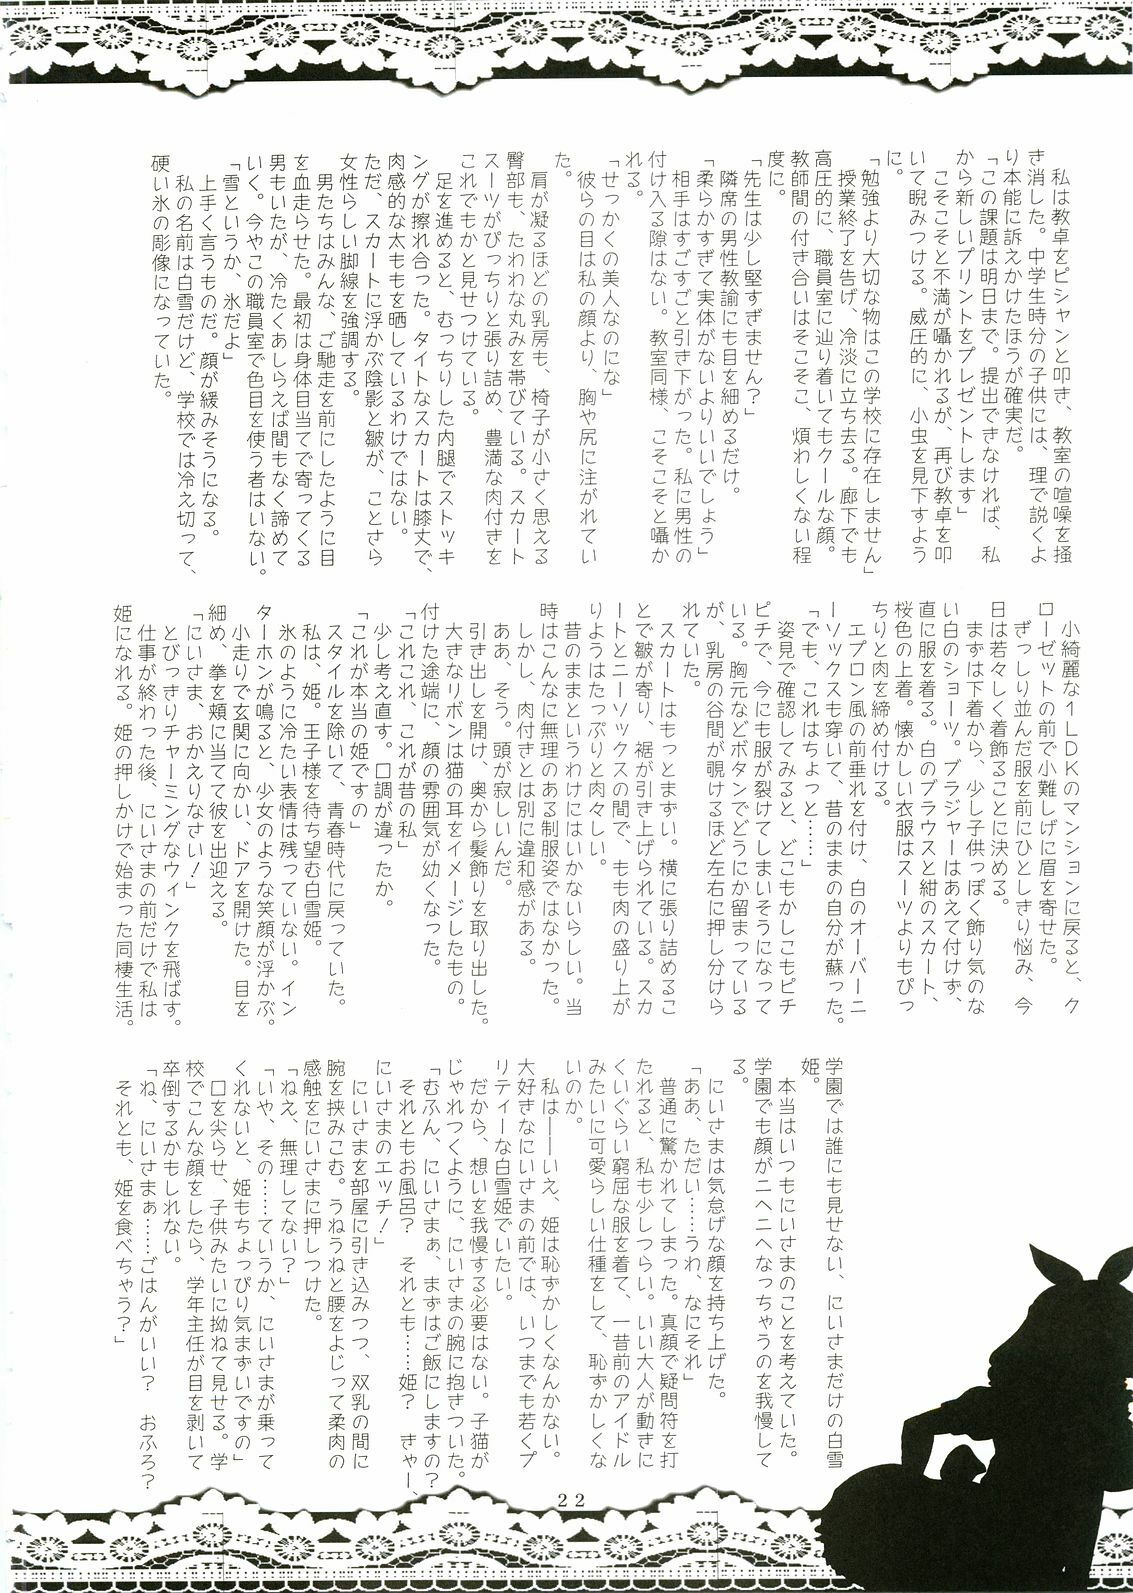 私は教卓をピシャンと叩き、教室の喧噪を掻
き消した。中学生時分の子供には、理で説くよ
り本能に訴えかけたほうが確実だ。
「この課題は明日まで。提出できなければ、私
から新しいプリントをプレゼントします」
こそこそと不満が囁かれるが、再び教卓を叩
いて睨みつける。威圧的に、小虫を見下すよう
に。
「勉強より大切な物はこの学校に存在しません」
授業終了を告げ、冷淡に立ち去る。廊下でも
高圧的に、職員室に辿り着いてもクールな顔。
教師間の付き合いはそこそこ、煩わしくない程
度に。
「先生は少し堅すぎません？」
隣席の男性教諭にも目を細めるだけ。
「柔らかすぎて実体がないよりいいでしょう」
相手はすごすごと引き下がった。私に男性の
付け入る隙はない。教室同様、こそこそと囁か
れる。
「せっかくの美人なのにな」
彼らの目は私の顔より、胸や尻に注がれてい
た。
肩が凝るほどの乳房も、椅子が小さく思える
臀部も、たわわな丸みを帯びている。スカート
スーツがぴっちりと張り詰め、豊満な肉付きを
これでもかと見せつけている。
足を進めると、むっちりした内腿でストッキ
ングが擦れ合った。タイトなスカートは膝丈で、
肉感的な太ももを晒しているわけではない。
ただ、スカートに浮かぶ陰影と皺が、ことさら
女性らしい脚線を強調する。
男たちはみんな、ご馳走を前にしたように目
を血走らせた。最初は身体目当てで寄ってくる
男もいたが、冷たくあしらえば間もなく諦めて
いく。今やこの職員室で色目を使う者はいない。
「雪というか、氷だよ」
上手く言うものだ。顔が緩みそうになる。
私の名前は白雪だけど、学校では冷え切って、
硬い氷の彫像になっていた。
小綺麗な１ＬＤＫのマンションに戻ると、ク
ローゼットの前で小難しげに眉を寄せた。
ぎっしり並んだ服を前にひとしきり悩み、今
日は若々しく着飾ることに決める。
まずは下着から、少し子供っぽく飾り気のな
い白のショーツ。ブラジャーはあえて付けず、
直に服を着る。白のブラウスと紺のスカート、
桜色の上着。懐かしい衣服はスーツよりもぴっ
ちりと肉を締め付ける。
エプロン風の前垂れを付け、白のオーバーニ
ーソックスも穿いて、昔のままの自分が蘇った。
「でも、これはちょっと……」
姿見で確認してみると、どこもかしこもピチ
ピチで、今にも服が裂けてしまいそうになって
いる。胸元などボタンでどうにか留まっている
が、乳房の谷間が覗けるほど左右に押し分けら
れていた。
スカートはもっとまずい。横に張り詰めるこ
とで皺が寄り、裾が引き上げられている。スカ
ートとニーソックスの間で、もも肉の盛り上が
りようはたっぷりと肉々しい。
昔のままというわけにはいかないらしい。当
時はこんなに無理のある制服姿ではなかった。
しかし、肉付きとは別に違和感がある。
ああ、そう。頭が寂しいんだ。
引き出しを開け、奥から髪飾りを取り出した。
大きなリボンは猫の耳をイメージしたもの。
付けた途端に、顔の雰囲気が幼くなった。
「これこれ、これが昔の私」
少し考え直す。口調が違ったか。
「これが本当の姫ですの」
スタイルを除いて、青春時代に戻っていた。
私は、姫。王子様を待ち望む白雪姫。
氷のように冷たい表情は残っていない。イン
ターホンが鳴ると、少女のような笑顔が浮かぶ。
小走りで玄関に向かい、ドアを開けた。目を
細め、拳を頬に当てて彼を出迎える。
「にいさま、おかえりなさい！」
とびっきりチャーミングなウィンクを飛ばす。
仕事が終わった後、にいさまの前だけで私は
姫になれる。姫の押しかけで始まった同棲生活。
学園では誰にも見せない、にいさまだけの白雪
姫。
本当はいつもにいさまのことを考えていた。
学園でも顔がニヘニヘなっちゃうのを我慢して
る。
にいさまは気怠げな顔を持ち上げた。
「ああ、ただい……うわ、なにそれ」
普通に驚かれてしまった。真顔で疑問符を打
たれると、私も少しつらい。いい大人が動きに
くいぐらい窮屈な服を着て、一昔前のアイドル
みたいに可愛らしい仕種をして、恥ずかしくな
いのか。
私は――いえ、姫は恥ずかしくなんかない。
大好きなにいさまの前では、いつまでも若くプ
リティーな白雪姫でいたい。
だから、想いを我慢する必要はない。子猫が
じゃれつくように、にいさまの腕に抱きついた。
「むふん、にいさまぁ、まずはご飯にしますの？
それともお風呂？　それとも……姫？　きゃー、
にいさまのエッチ！」
にいさまを部屋に引き込みつつ、双乳の間に
腕を挟みこむ。うねうねと腰をよじって柔肉の
感触をにいさまに押しつけた。
「ねえ、無理してない？」
「いや、その……ていうか、にいさまが乗って
くれないと、姫もちょっぴり気まずいですの」
口を尖らせ、子供みたいに拗ねて見せる。学
校でこんな顔をしたら、学年主任が目を剥いて
卒倒するかもしれない。
「ね、にいさまぁ……ごはんがいい？　おふろ？
それとも、姫を食べちゃう？」
２２